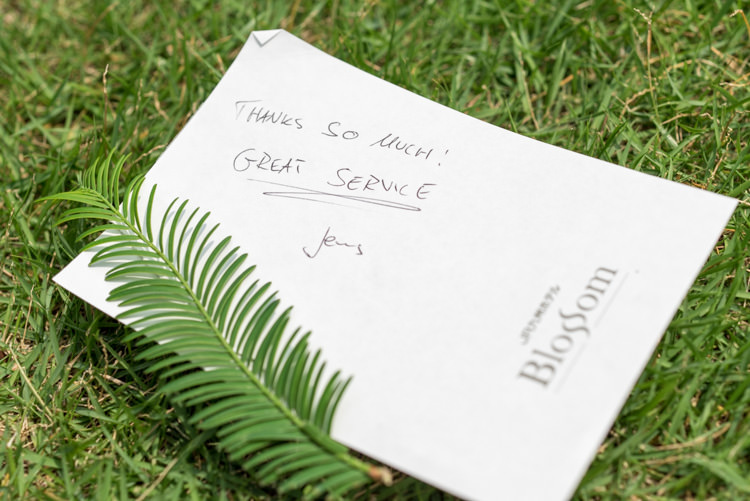 THANKS SO MUCH!
GREAT SERVICE
Jens
Blossom